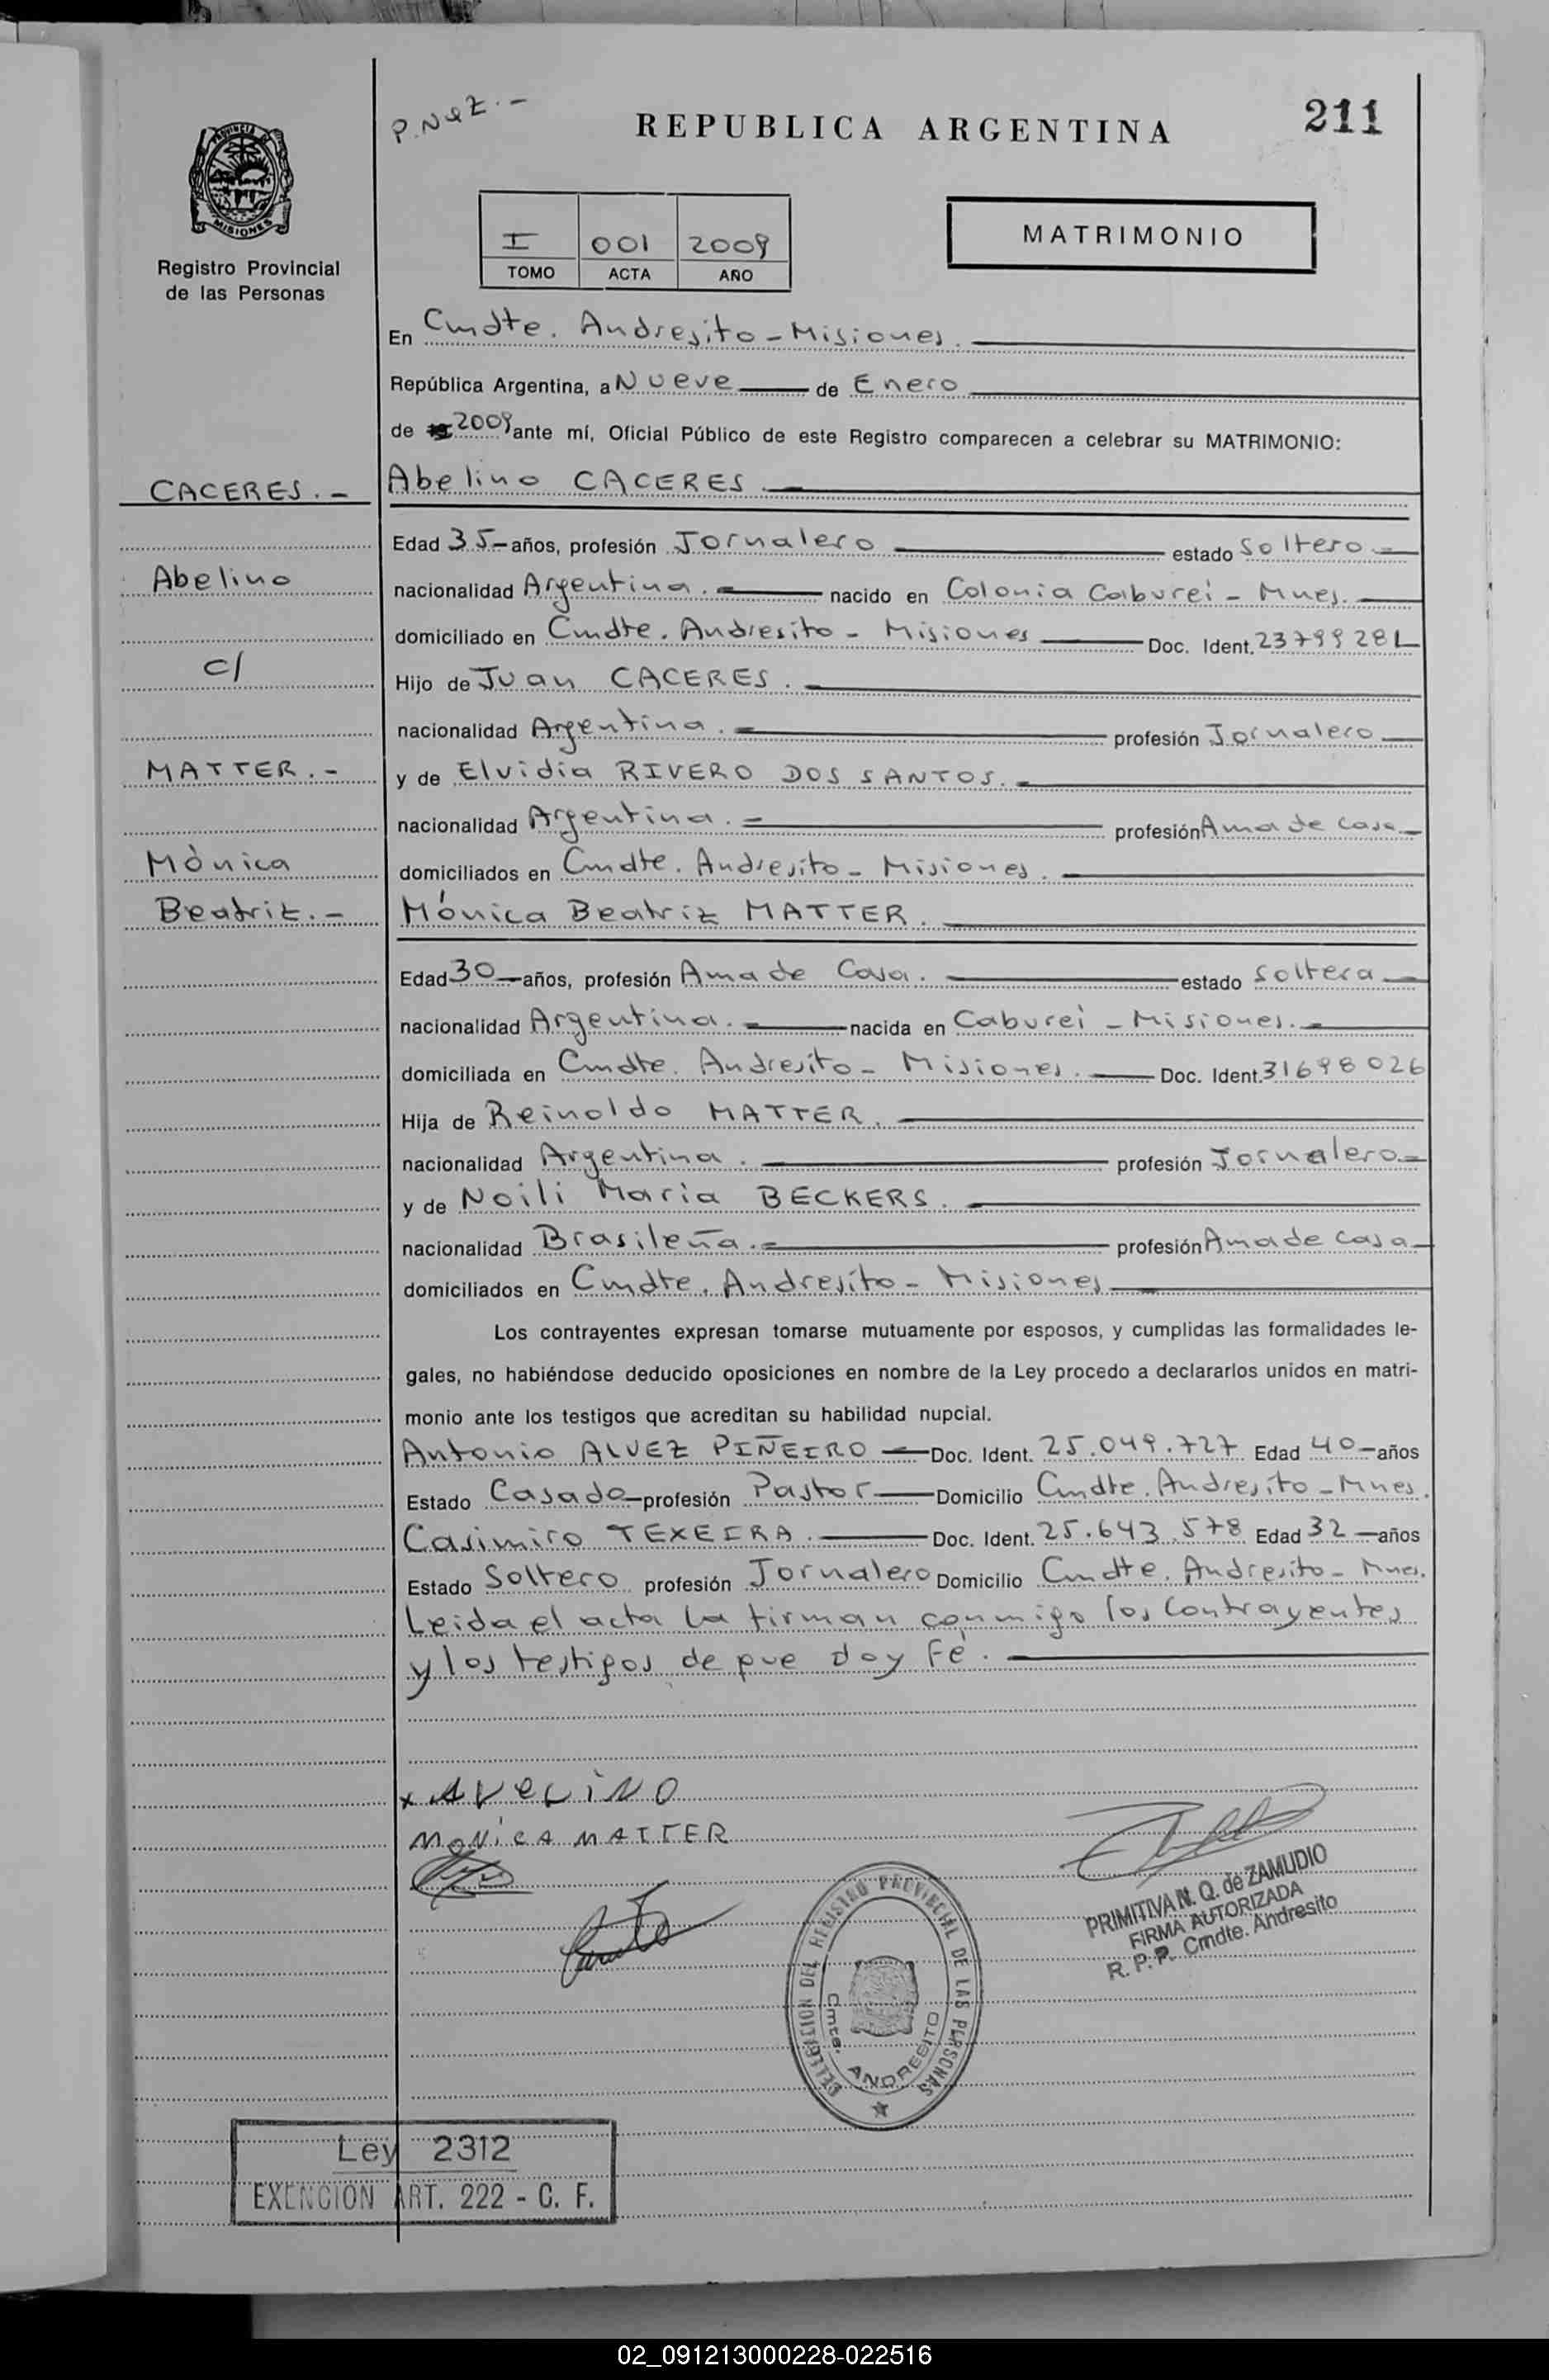 P. Nqz.-
REPUBLICA ARGENTINA
211
MISIONES
Registro Provincial
de las Personas
I 001 2009
TOMO ACTA AÑO
MATRIMONIO
En Cmdte. Andresito - Misiones.
República Argentina, a Nueve de Enero
de 2009 ante mí, Oficial Público de este Registro comparecen a celebrar su MATRIMONIO:
CACERES.-
Abelino CACERES.
Edad 35 - años, profesión Jornalero estado Soltero.-
Abelino
nacionalidad Argentina. nacido en Colonia Caburei - Mnes.
domiciliado en Cmdte. Andresito - Misiones Doc. Ident.
c/
Hijo de Juan CACERES.
nacionalidad Argentina. profesión Jornalero
MATTER.-
y de Elvidia RIVERO DOS SANTOS.
nacionalidad Argentina.- profesión Ama de Casa
Mónica
domiciliados en Cmdte. Andresito - Misiones.
Beatriz.-
Mónica Beatriz MATTER.
Edad 30 años, profesión Ama de Casa. estado Soltera
nacionalidad Argentina. nacida en Caburei - Misiones.
domiciliada en Cmdte. Andresito - Misiones. Doc. Ident. 31698026
Hija de Reinoldo MATTER.
nacionalidad Argentina. profesión Jornalero
y de Noili Maria BECKERS.
nacionalidad Brasileña. profesión Ama de Casa
domiciliados en Cmdte. Andresito - Misiones
Los contrayentes expresan tomarse mutuamente por esposos, y cumplidas las formalidades le-
gales, no habiéndose deducido oposiciones en nombre de la Ley procedo a declararlos unidos en matri-
monio ante los testigos que acreditan su habilidad nupcial.
Antonio ALVEZ PIÑEIRO Doc. Ident. 25.049.727 Edad 40 años
Estado Casado profesión Pastor Domicilio Cmdte. Andresito - Mnes.
Casimiro TEXEIRA. Doc. Ident. 25.643.578 Edad 32 años
Estado Soltero profesión Jornalero Domicilio Cmdte. Andresito - Mnes.
Leida el acta la firman conmigo los Contrayentes
y los testigos de que doy Fé.
x AVELINO
MONICA MATTER
PRIMITIVA N. Q. de ZAMUDIO
FIRMA AUTORIZADA
R. P. P. Cmdte. Andresito
DELEGACION DEL REGISTRO PROVINCIAL DE LAS PERSONAS
Cmte. ANDRESITO
Ley 2312
EXENCION ART. 222 - C. F.
02_091213000228-022516